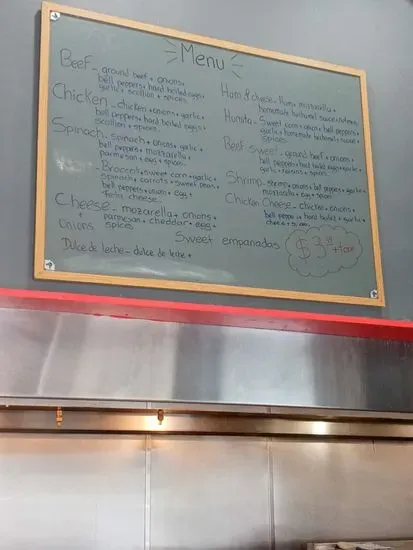 Menu
Beef - ground beef + onions +
bell peppers + hard boiled eggs +
garlic + scallion + spices
Chicken - chicken + onions + garlic +
bell peppers + hard boiled eggs +
scallion + spices
Spinach - spinach + onions + garlic +
bell peppers + mozzarella +
parmesan + egg + spices
- Broccoli + sweet corn + garlic +
spinach + carrots + sweet peas +
bell peppers + onion + egg +
cheese
Cheese - mozarella + onions
+ parmesan + cheddar + egg +
Onions spices
Dulce de leche - dulce de leche +
Ham & cheese - Ham + mozzarella +
homemade bechamel sauce + nutmeg
Humita - Sweet corn + onion + bell peppers +
garlic + homemade bechamel sauce +
spices
Beef Sweet - ground beef + onions +
bell peppers + hard boiled eggs + garlic +
raisins + spices
Shrimp - shrimp + onions + bell peppers + garlic +
mozzarella + egg + spices
Chicken Cheese - chicken + onions +
bell pepper + hard boiled + garlic +
cheese + spices
Sweet empanadas
$3 + tax